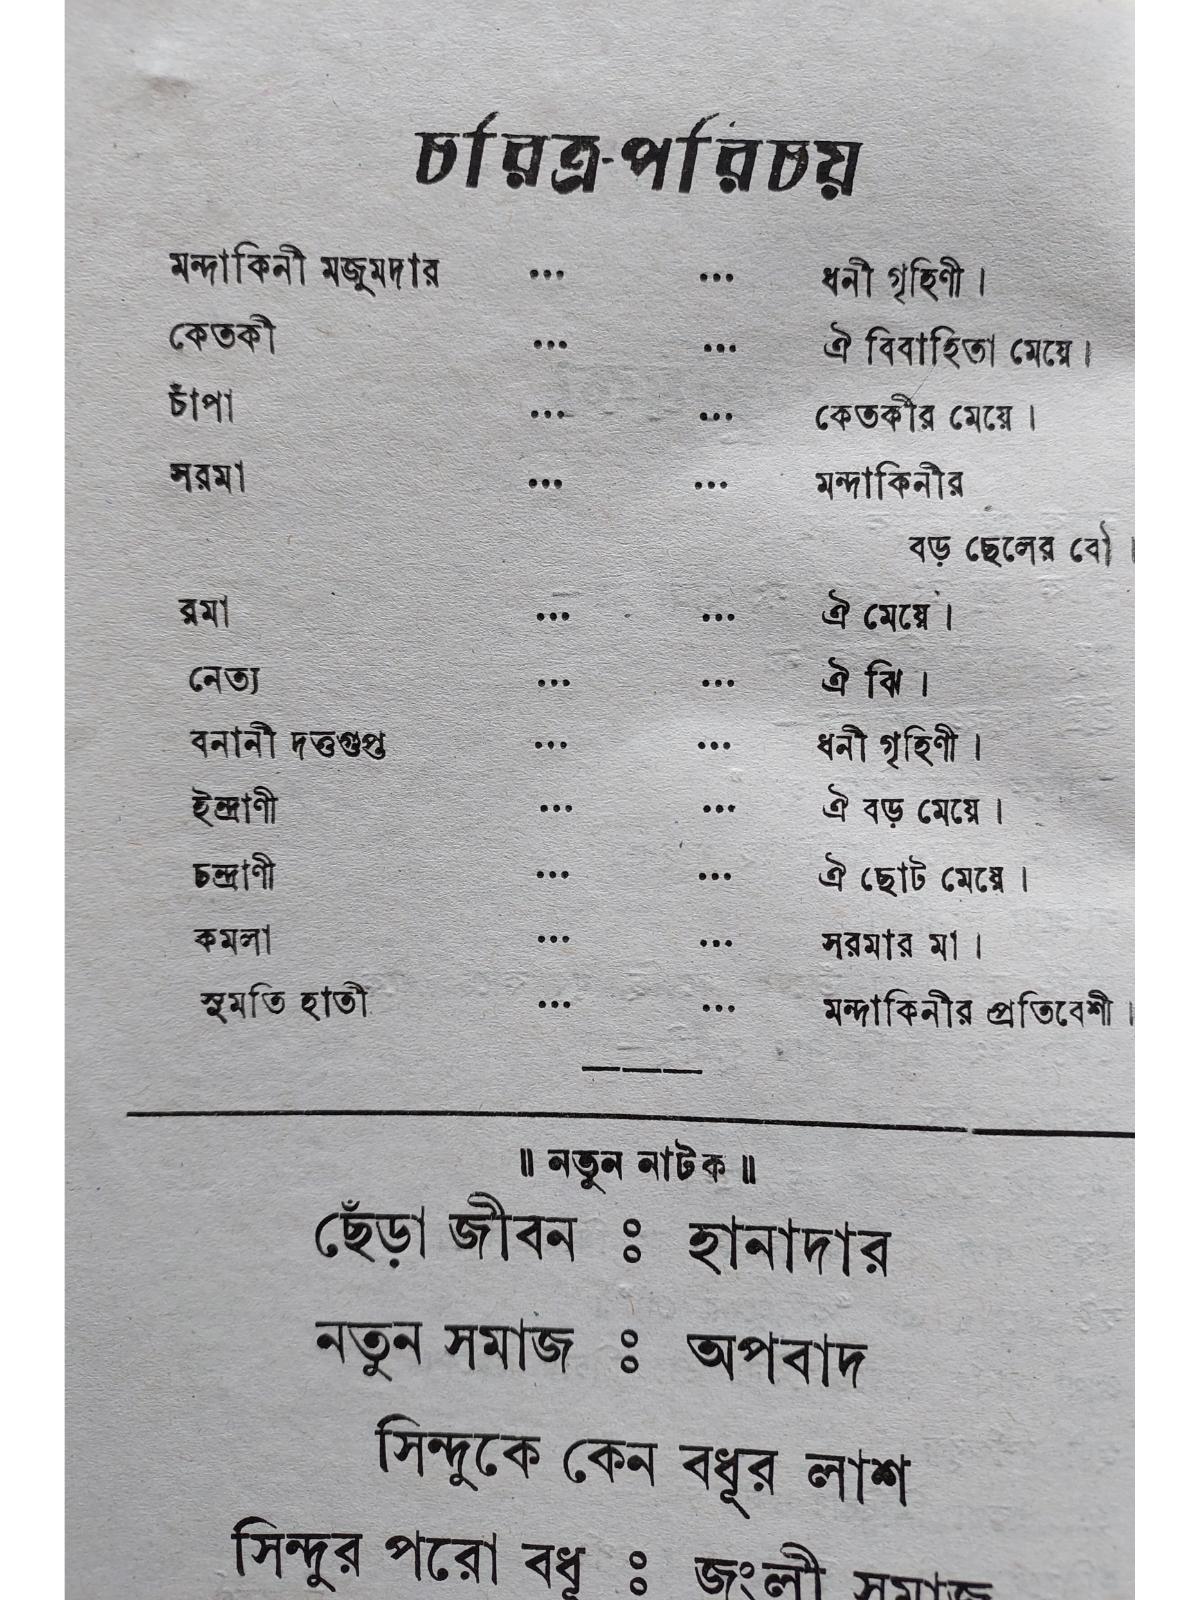 চরিত্র-পরিচয়
মন্দাকিনী মজুমদার ... ... ধনী গৃহিণী।
কেতকী ... ... ঐ বিবাহিতা মেয়ে।
চাঁপা ... ... কেতকীর মেয়ে।
সরমা ... ... মন্দাকিনীর
বড় ছেলের বৌ।
রমা ... ... ঐ মেয়ে।
নেত্য ... ... ঐ ঝি।
বনানী দত্তগুপ্ত ... ... ধনী গৃহিণী।
ইন্দ্রাণী ... ... ঐ বড় মেয়ে।
চন্দ্রাণী ... ... ঐ ছোট মেয়ে।
কমলা ... ... সরমার মা।
সুমতি হাতী ... ... মন্দাকিনীর প্রতিবেশী।
॥ নতুন নাটক ॥
ছেঁড়া জীবন ঃ হানাদার
নতুন সমাজ ঃ অপবাদ
সিন্দুকে কেন বধূর লাশ
সিন্দুর পরো বধূ ঃ জংলী সমাজ